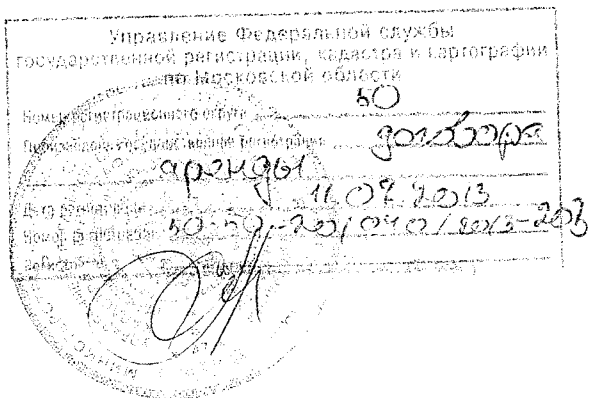 Управление Федеральной службы
государственной регистрации, кадастра и картографии
по Московской области
Номер регистрационного округа 50
Произведена государственная регистрация договора
аренды
Дата регистрации 11.07.2013
Номер регистрации 50-50-20/040/2013-203